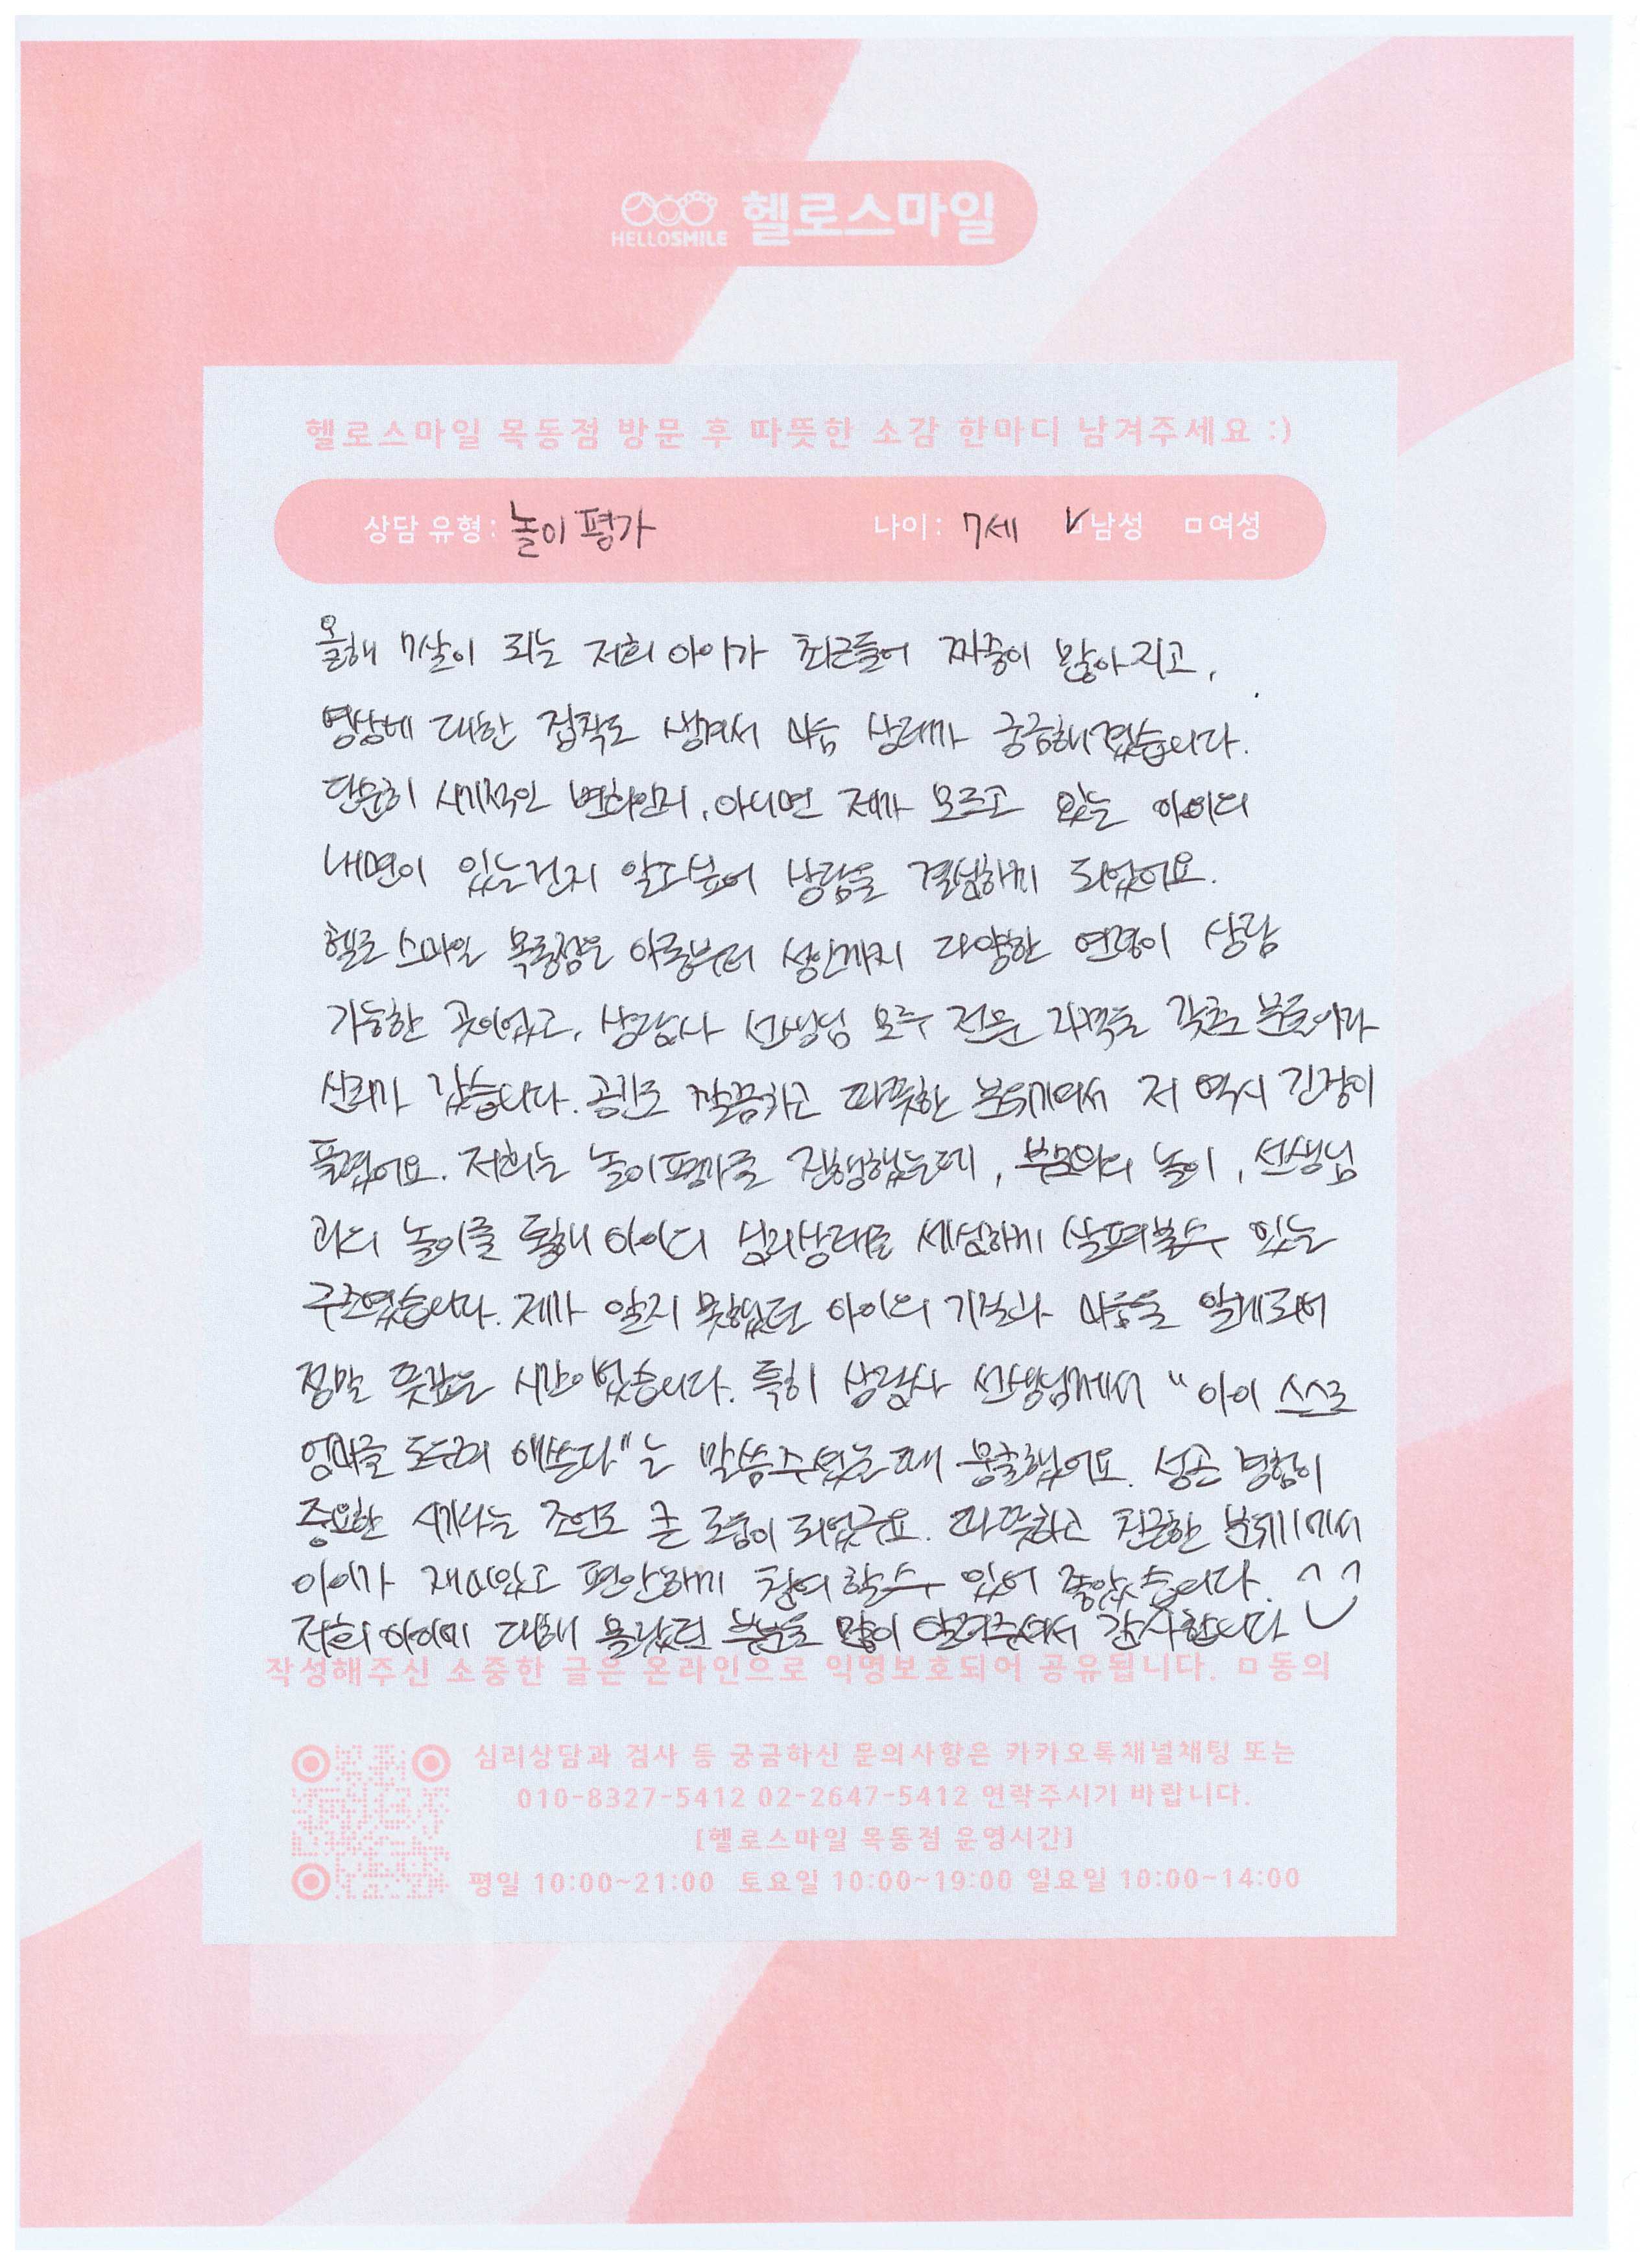 HELLOSMILE 헬로스마일
헬로스마일 목동점 방문 후 따뜻한 소감 한마디 남겨주세요 :)
상담 유형: 놀이평가 나이: 7세 ✓남성 □여성
올해 7살이 되는 저희 아이가 최근들어 짜증이 많아지고,
영상에 대한 집착도 생겨서 마음 상태가 궁금해졌습니다.
단순히 시기적인 변화인지, 아니면 제가 모르고 있는 아이의
내면이 있는건지 알고싶어 상담을 결심하게 되었어요.
헬로 스마일 목동점은 아동부터 성인까지 다양한 연령이 상담
가능한 곳이었고, 상담사 선생님 모두 전문 자격을 갖춘 분들이라
신뢰가 갔습니다. 공간도 깔끔하고 따뜻한 분위기여서 저 역시 긴장이
풀렸어요. 저희는 놀이평가를 진행했는데, 부모와의 놀이, 선생님
과의 놀이를 통해 아이의 심리상태를 세심하게 살펴볼수 있는
구조였습니다. 제가 알지 못했던 아이의 기질과 마음을 알게되어
정말 뜻깊은 시간이었습니다. 특히 상담사 선생님께서 "아이 스스로
엄마를 도우려 애쓴다"는 말씀주셨는데 뭉클했어요. 성공 경험이
중요한 시기라는 조언도 큰 도움이 되었구요. 따뜻하고 친근한 분위기에서
아이가 재미있고 편안하게 참여할수 있어 좋았습니다.
저희 아이에 대해 몰랐던 부분을 많이 알려주셔서 감사합니다
작성해주신 소중한 글은 온라인으로 익명보호되어 공유됩니다. □동의
심리상담과 검사 등 궁금하신 문의사항은 카카오톡채널채팅 또는
010-8327-5412 02-2647-5412 연락주시기 바랍니다.
[헬로스마일 목동점 운영시간]
평일 10:00~21:00 토요일 10:00~19:00 일요일 10:00~14:00